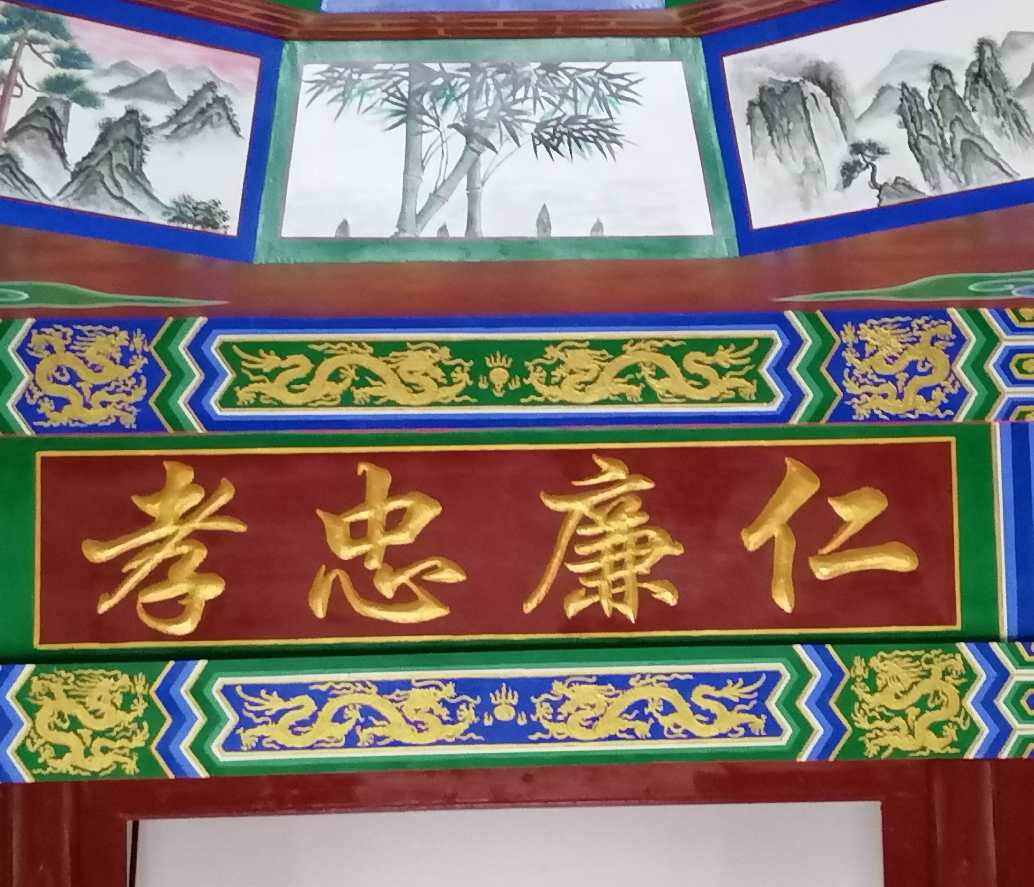 仁廉忠孝